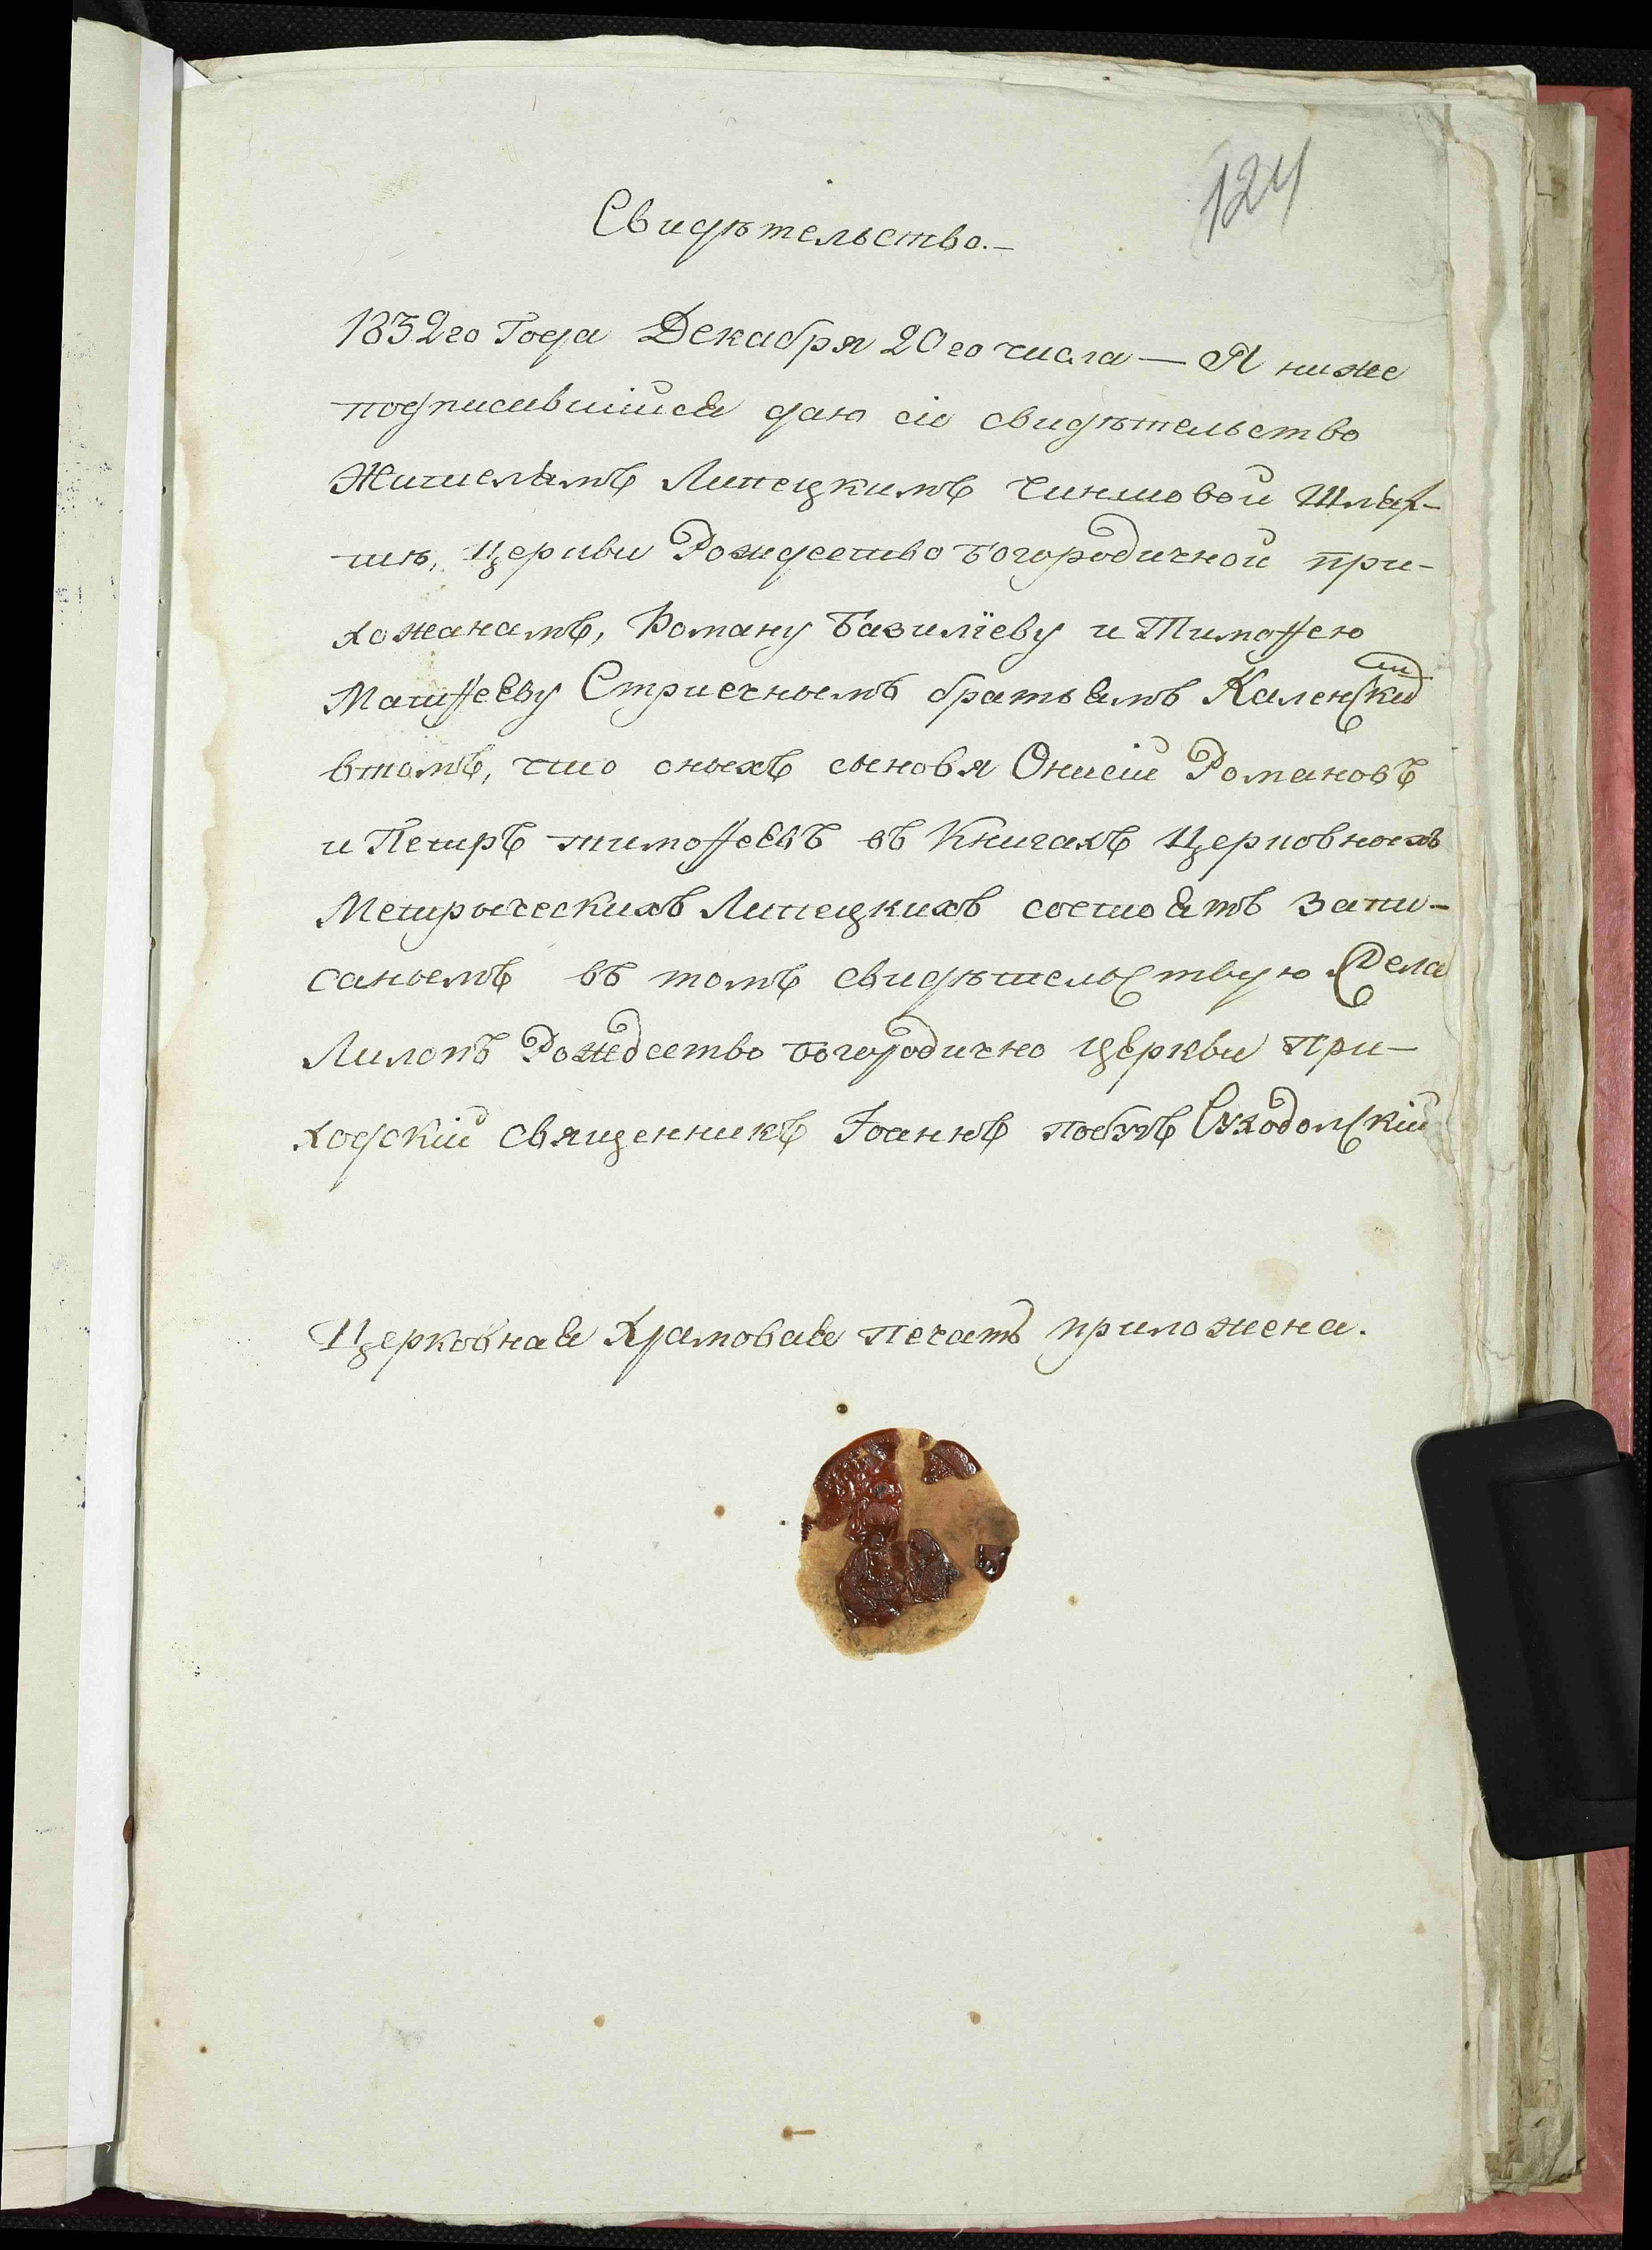 124
Свидѣтельство.–
1832го Года Декабря 20го числа — Я ниже
подписавшийся даю сіе свидѣтельство
Жителямъ Липецкимъ Чиншовой Шлях-
тѣ, Церкви Рождество Богородичной при-
хожанамъ, Роману Базиліеву и Тимоффею
Матффееву Стриечнымъ братьямъ Каленскимъ
втомъ, что оныхъ сыновя Онисій Романовъ
и Петръ тимоффеевъ въ Книгахъ Церковныхъ
Метрыческихъ Липецкихъ состоятъ запи-
саныемъ въ томъ свидѣтельствую Села
Рождество Богородично Церкви При-
ходскій священникъ Іоаннъ Суходолскій
Церковная Храмовая печать приложена.